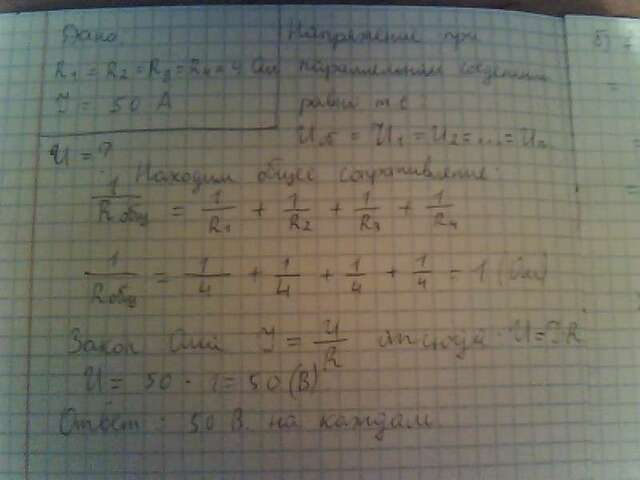 Дано: Напряжение при
R1 = R2 = R3 = R4 = 4 Ом параллельном соединении
I = 50 А равны т.е.
U = ? Uоб = U1 = U2 = ... = Un
Находим общее сопротивление:
1/Rобщ = 1/R1 + 1/R2 + 1/R3 + 1/R4
1/Rобщ = 1/4 + 1/4 + 1/4 + 1/4 = 1 (Ом)
Закон Ома I = U/R отсюда U = IR
U = 50 · 1 = 50 (В)
Ответ: 50 В на каждом